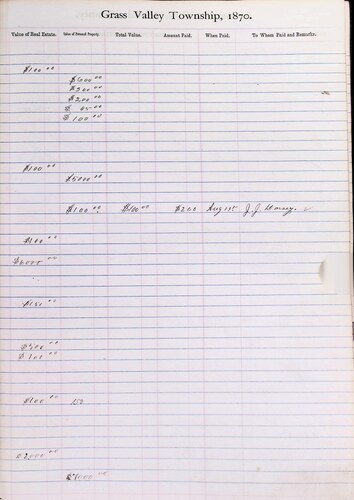 Grass Valley Township, 1870.
Value of Real Estate. Value of Personal Property. Total Value. Amount Paid. When Paid. To Whom Paid and Remarks.
$100 00
$600 00
$200 00
$200 00
$100 00
$100 00
$5000 00
$100 00 $100 00 $200 Aug 1st J. J.
$100 00
$6000 00
$150 00
$500 00
$100 00
$100 00 150
$2000 00
$1000 00